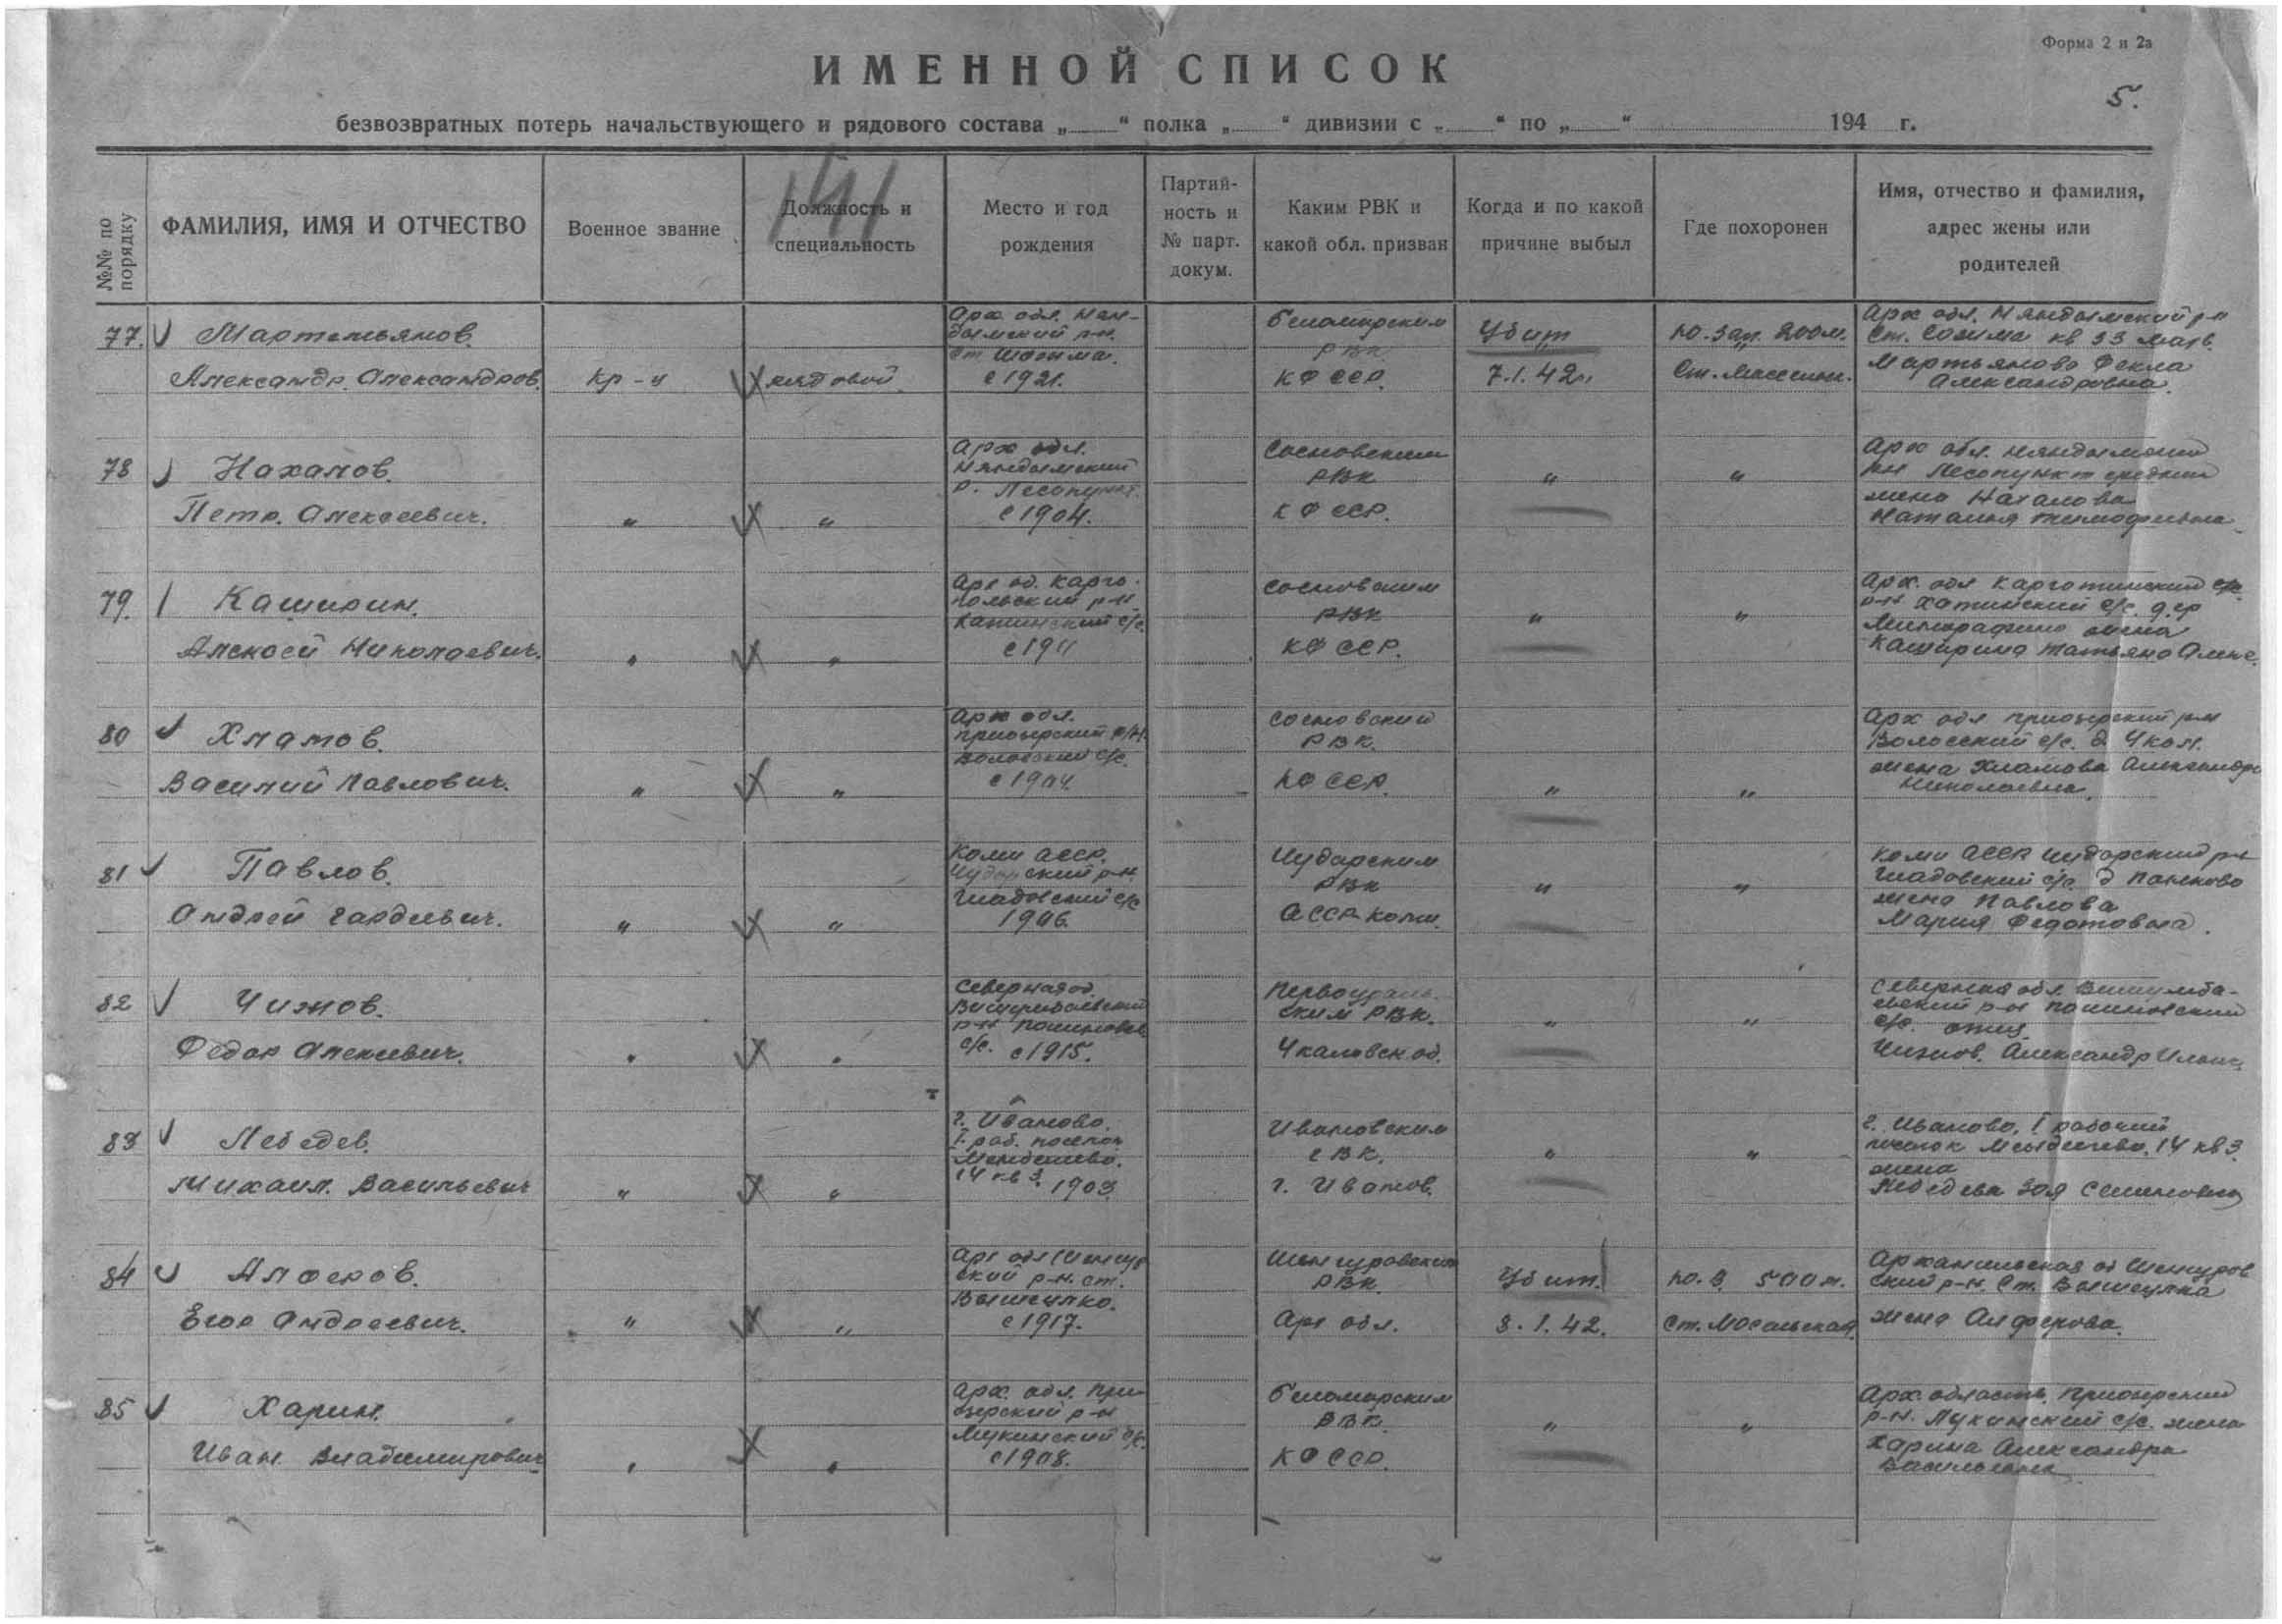 Форма 2 и 2а
ИМЕННОЙ СПИСОК
5.
безвозвратных потерь начальствующего и рядового состава „ “ полка „ “ дивизии с „ “ по „ “ 194 г.
141
№№ по порядку
ФАМИЛИЯ, ИМЯ И ОТЧЕСТВО
Военное звание
Должность и специальность
Место и год рождения
Партий-
ность и
№ парт.
докум.
Каким РВК и какой обл. призван
Когда и по какой причине выбыл
Где похоронен
Имя, отчество и фамилия,
адрес жены или
родителей
77. Мартемьянов.
Александр. Александров.
Кр-ц
рядовой
Арх. обл. Нян-
домский р-н.
ст. Шожма.
с 1921.
беломорским
РВК
КФССР.
Убит
7.1.42г.
ю. зап. 200м.
Ст. Масельск.
Арх обл. Няндомский р-н
Ст. кв 33
Мартьянова Фекла
Александровна.
78 Нахалов.
Петр. Алексеевич.
" "
Арх обл.
Няндомский
р. Лесопункт.
с 1904.
Сосновским
РВК
КФССР.
" "
Арх обл. Няндомский
рн Лесопункт
жена Нахалова
Наталья Тимофеевна.
79. Каширин.
Алексей Николаевич.
" "
Арх об. Карго-
польский р-н.
с/с.
с 1911
Сосновским
РВК
КФССР.
" "
Арх. обл
р-н с/с. дер
жена
Каширина Татьяна Алекс.
80 Хламов.
Василий Павлович.
" "
Арх обл.
приозерский р/н.
Волосский с/с.
с 1904.
Сосновский
РВК.
КФССР.
" "
Арх обл приозерский р-н
Волосский с/с. д
жена Хламова Александра
Николаевна.
81 Павлов.
Андрей Гордеевич.
" "
Коми АССР.
р-н.
с/с
1906.
РВК
АССР Коми.
" "
Коми АССР р-н
с/с. д
жена Павлова
Мария Федотовна.
82 Чижов.
Федор Алексеевич.
" "
Северная об.
р-н
с/с. с 1915.
Первоураль-
ским РВК.
Чкаловск об.
" "
Северная обл.
р-н
с/с. отец
Чижов. Александр Ильич
83 Лебедев.
Михаил. Васильевич
" "
г. Иваново.
1 раб. поселок
14 кв 3. 1903.
Ивановским
г. Иванов.
" "
г. Иваново, 1 рабочий
поселок 14 кв 3.
жена
Лебедева Зоя Семеновна
84 Алферов.
Егор Андреевич.
" "
Арх обл Шенкур
ский р-н. ст.
с 1917.
Шенкуровским
РВК
Арх обл.
Убит.
8.1.42.
ю. В 500 м.
Ст. Масельская
Архангельская об Шенкуров
ский р-н. Ст.
жена Алферова.
85 Харин.
Иван Владимирович
" "
Арх. обл. При-
озерский р-н
с/с.
с 1908.
беломорским
РВК.
КФССР.
" "
Арх. область. Приозерский
р-н. Лукинский с/с. жена
Харина Александра
Васильевна